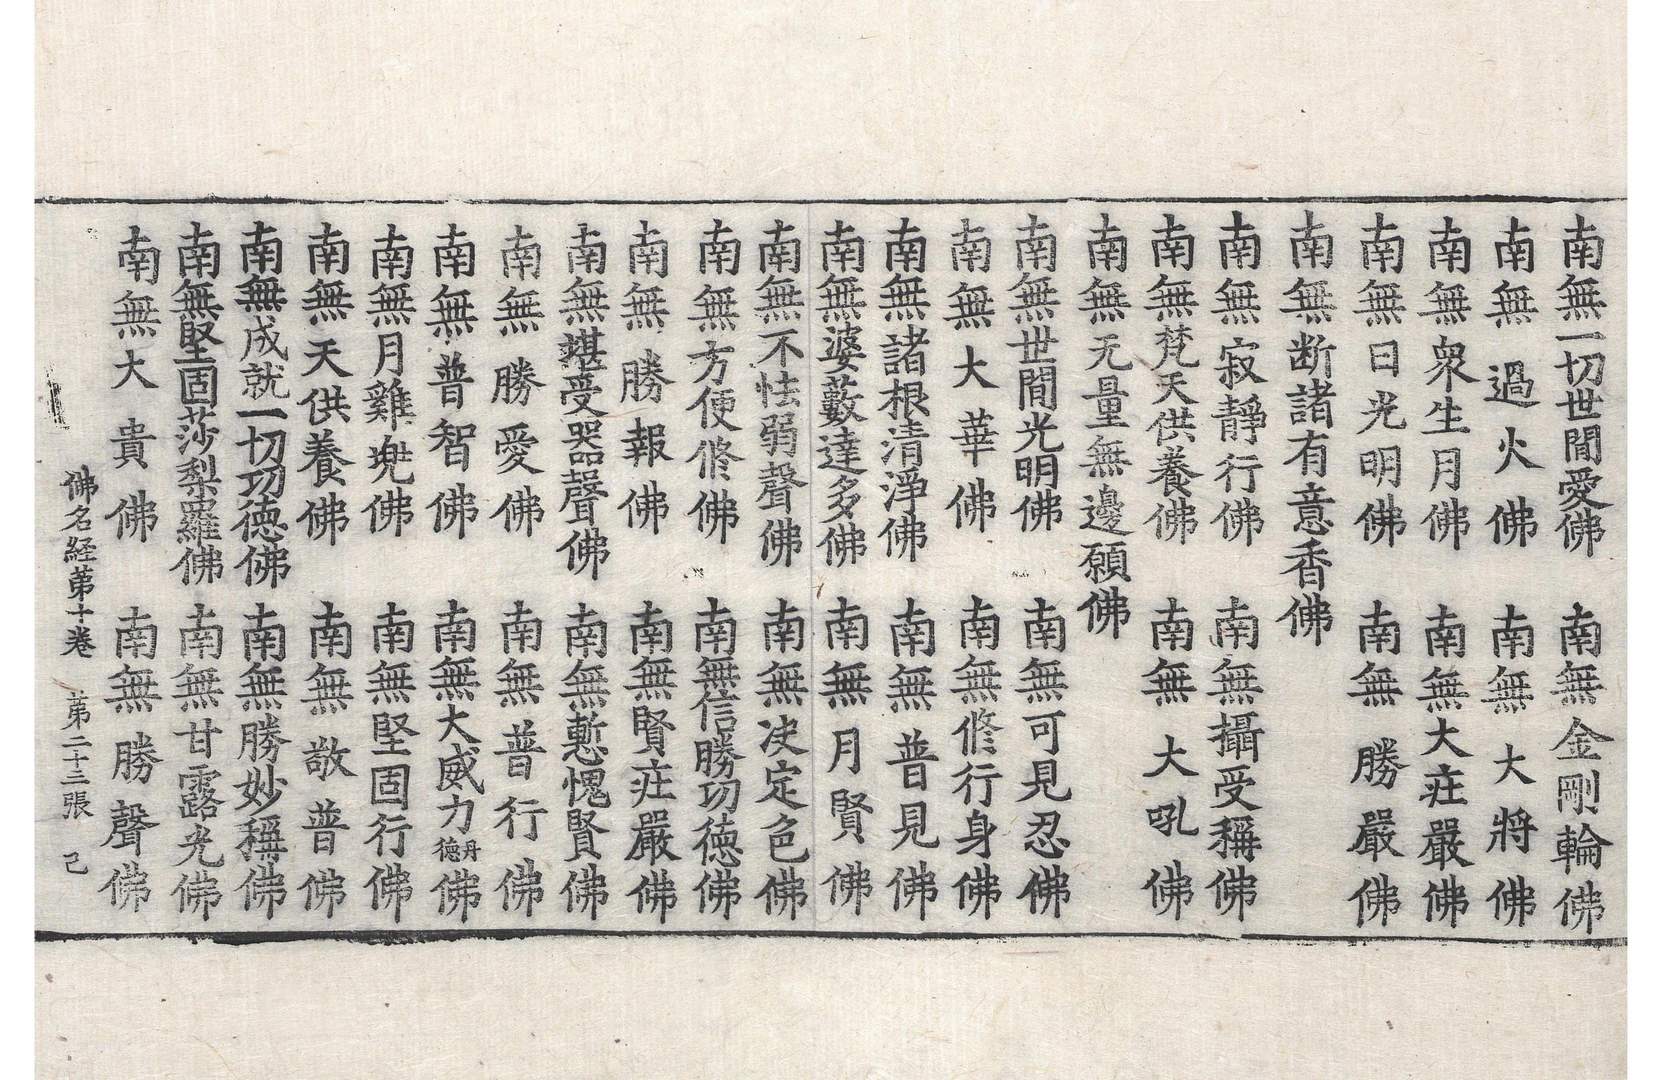 南無一切世間愛佛 南無金剛輪佛
南無過火佛 南無大將佛
南無衆生月佛 南無大荘嚴佛
南無日光明佛 南無勝嚴佛
南無断諸有意香佛
南無寂靜行佛 南無攝受稱佛
南無梵天供養佛 南無大吼佛
南無无量無邊願佛
南無世間光明佛 南無可見忍佛
南無大華佛 南無修行身佛
南無諸根清淨佛 南無普見佛
南無婆藪達多佛 南無月賢佛
南無不怯弱聲佛 南無决定色佛
南無方便修佛 南無信勝功德佛
南無勝報佛 南無賢荘嚴佛
南無堪受器聲佛 南無慙愧賢佛
南無勝愛佛 南無普行佛
南無普智佛 南無大威力丹德佛
南無月雞兜佛 南無堅固行佛
南無天供養佛 南無敬普佛
南無成就一切功德佛 南無勝妙稱佛
南無堅固莎梨羅佛 南無甘露光佛
南無大貴佛 南無勝聲佛
佛名経苐十卷 苐二十二張 己